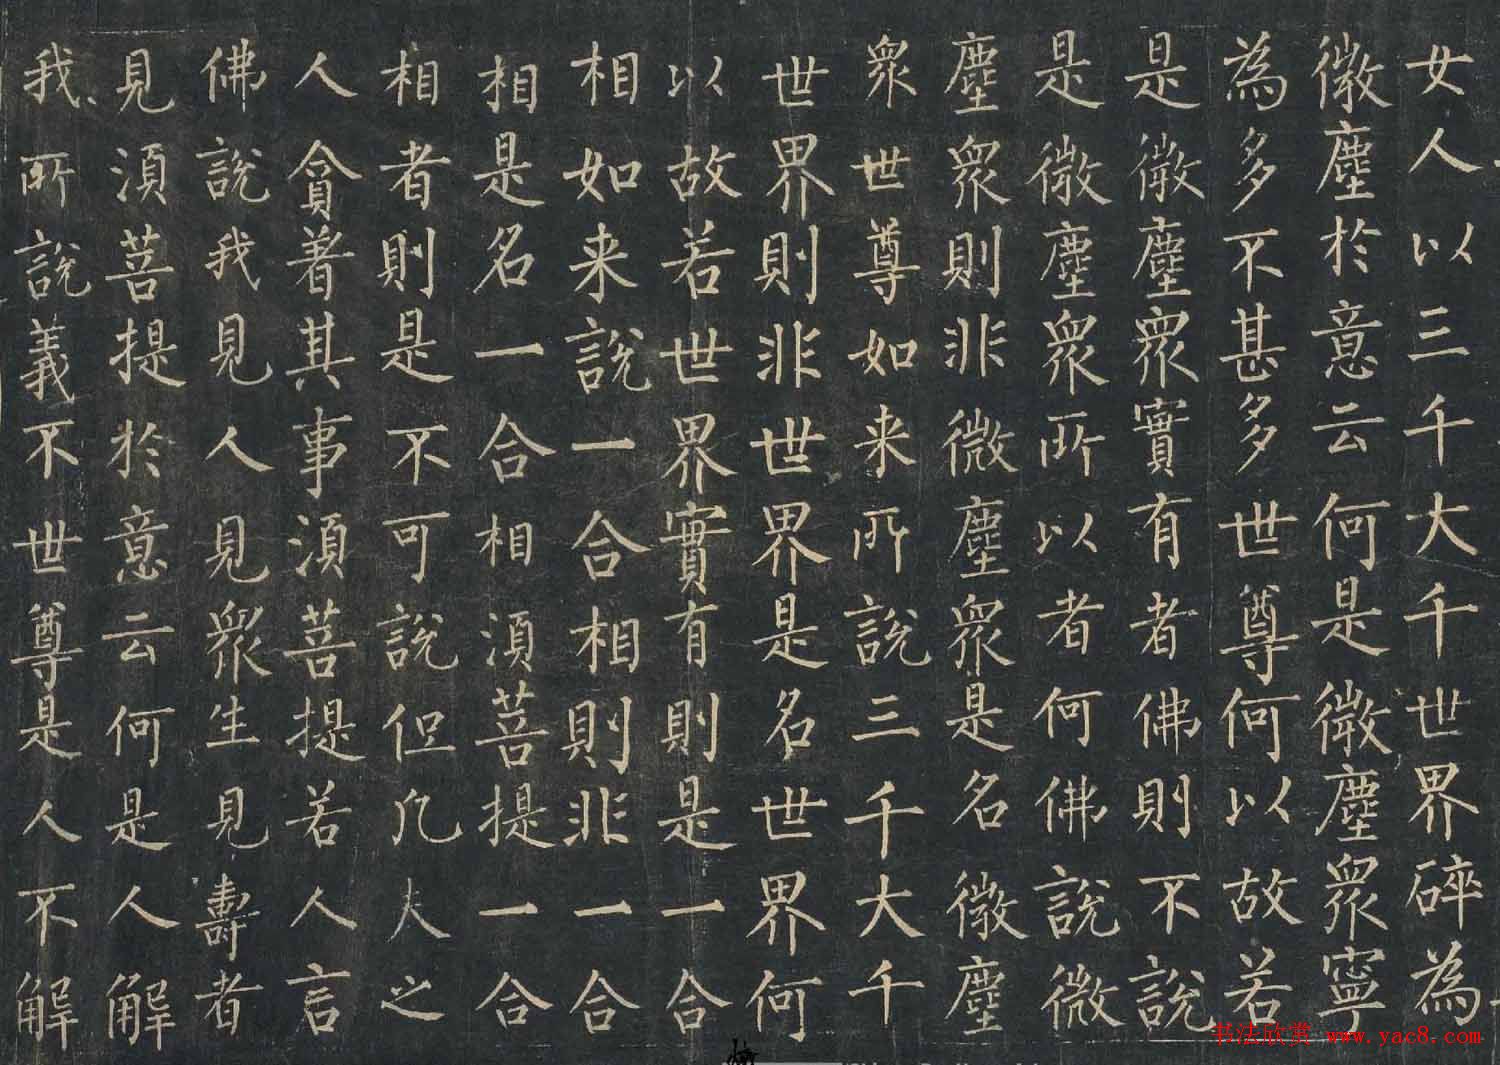 女人以三千大千世界碎為
微塵於意云何是微塵衆寧
為多不甚多世尊何以故若
是微塵衆實有者佛則不說
是微塵衆所以者何佛說微
塵衆則非微塵衆是名微塵
衆世尊如来所說三千大千
世界則非世界是名世界何
以故若世界實有則是一合
相如来說一合相則非一合
相是名一合相須菩提一合
相者則是不可說但凡夫之
人貪著其事須菩提若人言
佛說我見人見衆生見壽者
見須菩提於意云何是人解
我所說義不世尊是人不解
书法欣赏 www.yac8.com